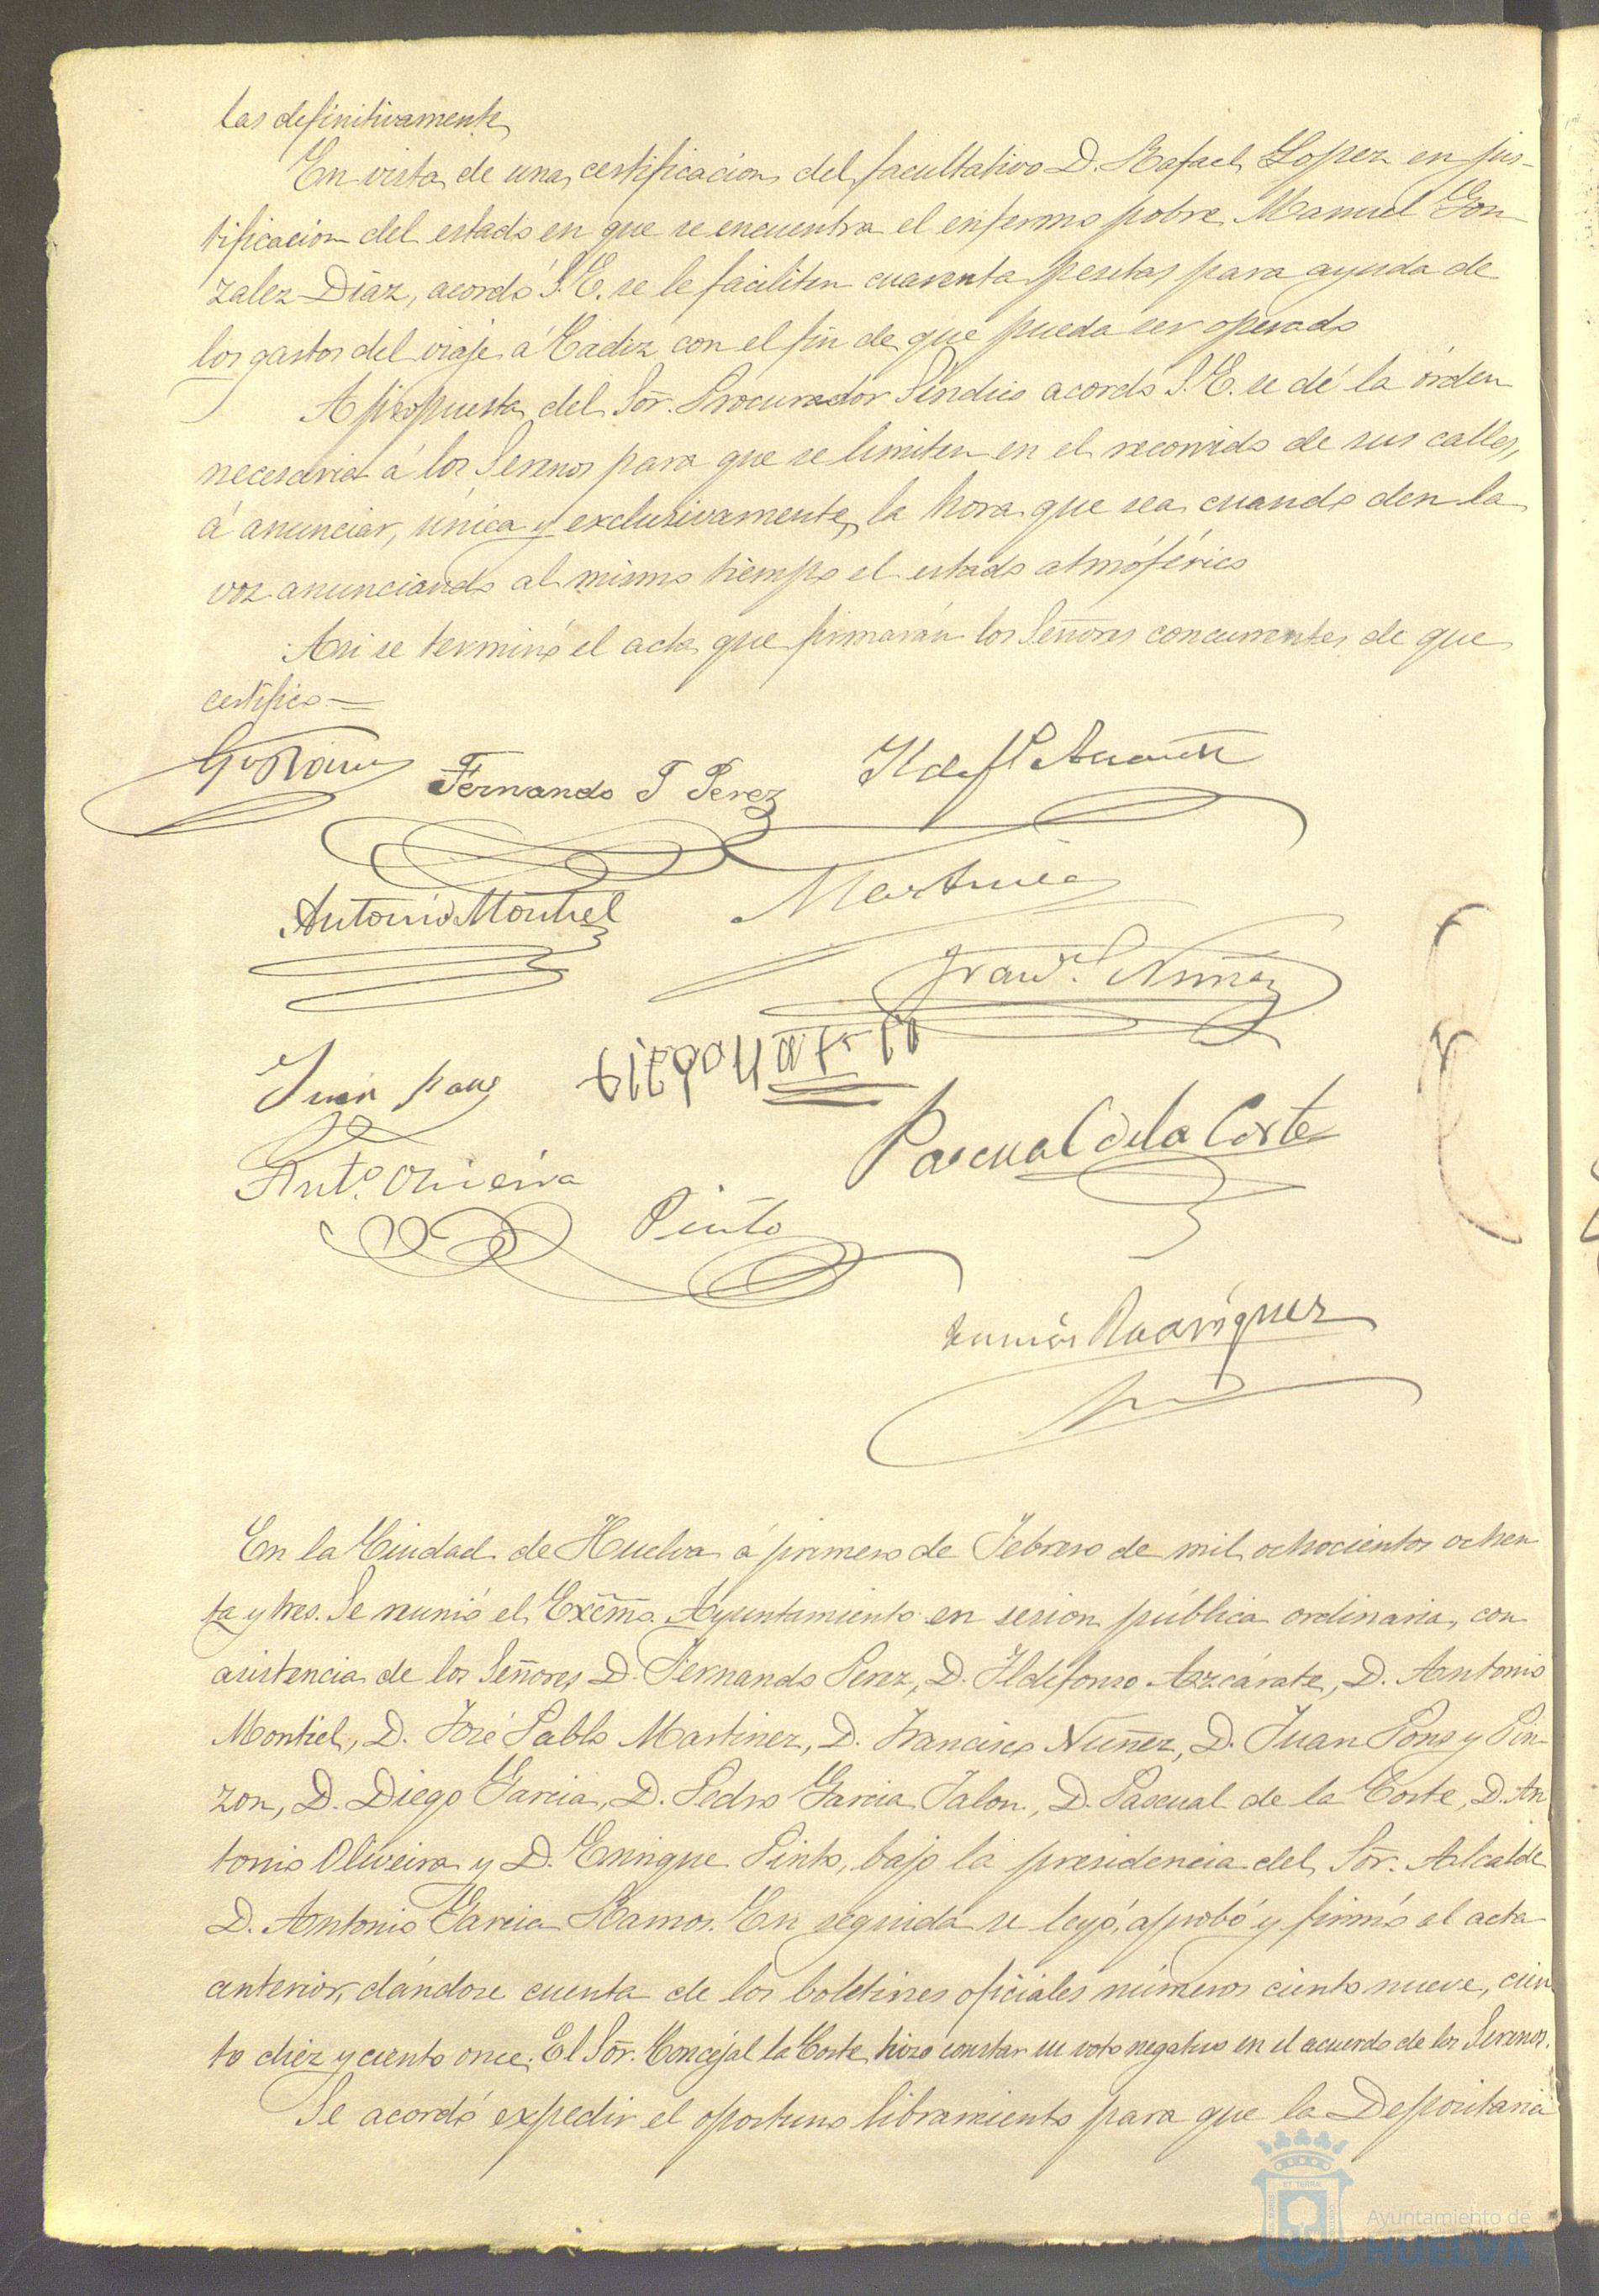 las definitivamente
En vista de una certificacion del facultativo D. Rafael Lopez en jus-
tificacion del estado en que se encuentra el enfermo pobre Manuel Gon
zalez Diaz, acordó S. E. se le faciliten cuarenta pesetas para ayuda de
los gastos del viaje á Cadiz con el fin de que pueda ser operado
A propuesta del Sor. Procurador Sindico acordó S. E. se dé la órden
necesaria á los Serenos para que se limiten en el recorrido de sus calles,
á anunciar, única y exclusivamente, la hora que sea cuando den la
voz anunciando al mismo tiempo el estado atmósférico
Asi se terminó el acta que firmarán los Señores concurrentes de que
certifico=
Fernando T Perez
Antonio Montiel
Martinez
Franco. Nuñez
Juan pons
Pascual de la Corte
Anto. Oliveira
Pinto
Ramón Rodriguez
En la Ciudad de Huelva á primero de Febrero de mil ochocientos ochen
ta y tres. Se reunió el Excmo. Ayuntamiento en sesion pública ordinaria, con
asistencia de los Señores D. Fernando Perez, D. Ildefonso Azcárate, D. Antonio
Montiel, D. José Pablo Martinez, D. Francisco Nuñez, D. Juan Pons y Pin-
zon, D. Diego Garcia, D. Pedro Garcia Jalon, D. Pascual de la Corte, D. An
tonio Oliveira y D. Enrique Pinto, bajo la presidencia del Sor. Alcalde
D. Antonio Garcia Ramos. En seguida se leyó, aprobó y firmó el acta
anterior, dándose cuenta de los boletines oficiales números ciento nueve, cien
to diez y ciento once. El Sor. Concejal la Corte hizo constar su voto negativo en el acuerdo de los Serenos.
Se acordó expedir el oportuno libramiento para que la Depositaria
Ayuntamiento de
HUELVA